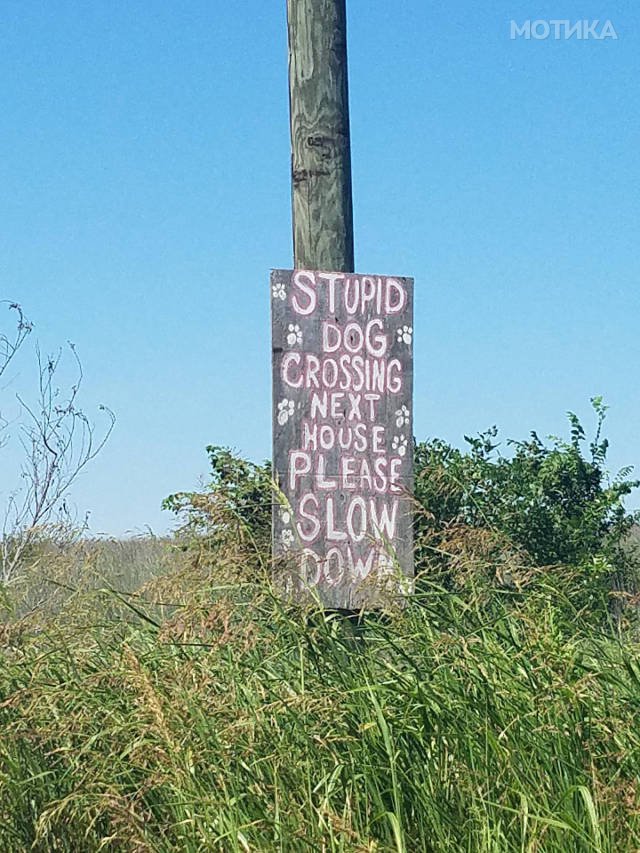 МОТИКА
STUPID
DOG
CROSSING
NEXT
HOUSE
PLEASE
SLOW
DOWN